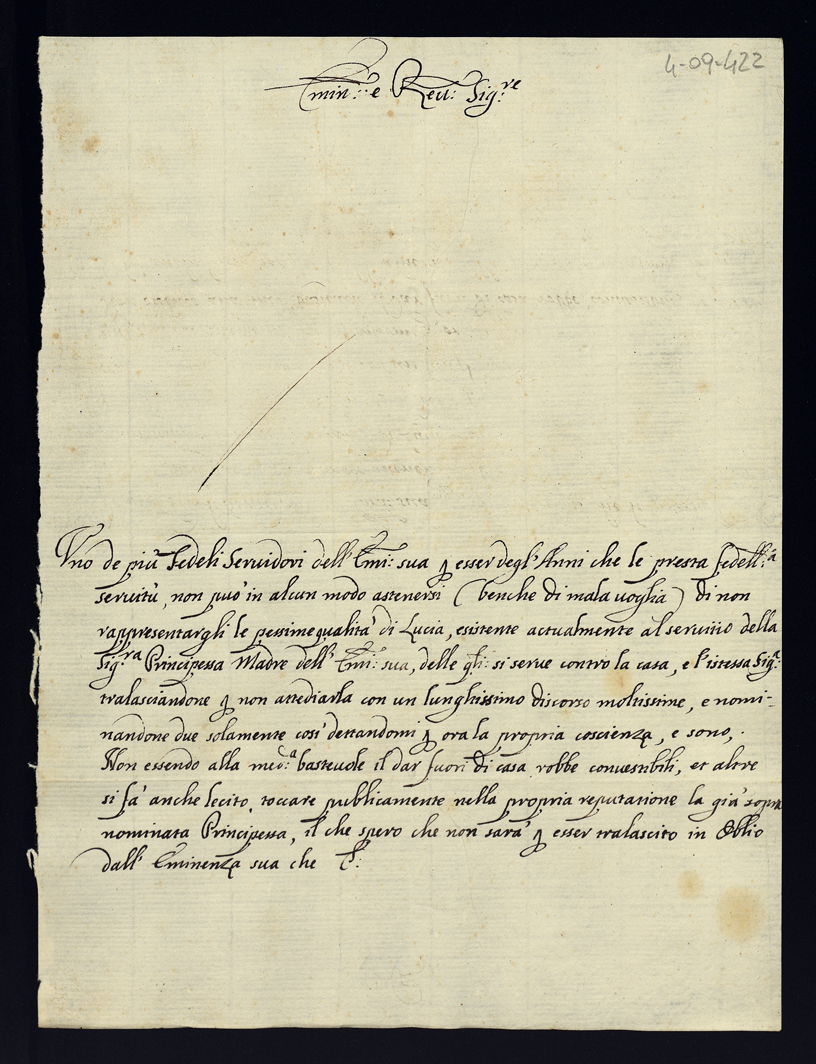 4-09-422
Emin:e e Rev: Sig:re
Vno de più Fedeli Seruidori dell' Emi: sua ꝑ esser degl' Anni che le presta fedell:a
seruitù, non può in alcun modo astenersi (benche di mala voglia) di non
rappresentargli le pessime qualità di Lucia, esistente actualmente al seruitio della
Sig:ra Principessa Madre dell' Emi: sua, delle q̃li: si serue contro la casa, e l'istessa Sig:a
tralasciandone ꝑ non attediarla con un lunghissimo discorso moltissime, e nomi-
nandone due solamente così dettandomi ꝑ ora la propria coscienza, e sono,
Non essendo alla med:a basteuole il dar fuori di casa robbe comestibili, et altre
si fà anche lecito toccare publicamente nella propria reputatione la già sopra
nominata Principessa, il che spero che non sarà ꝑ esser tralascito in Oblio
dall' Eminenza sua che